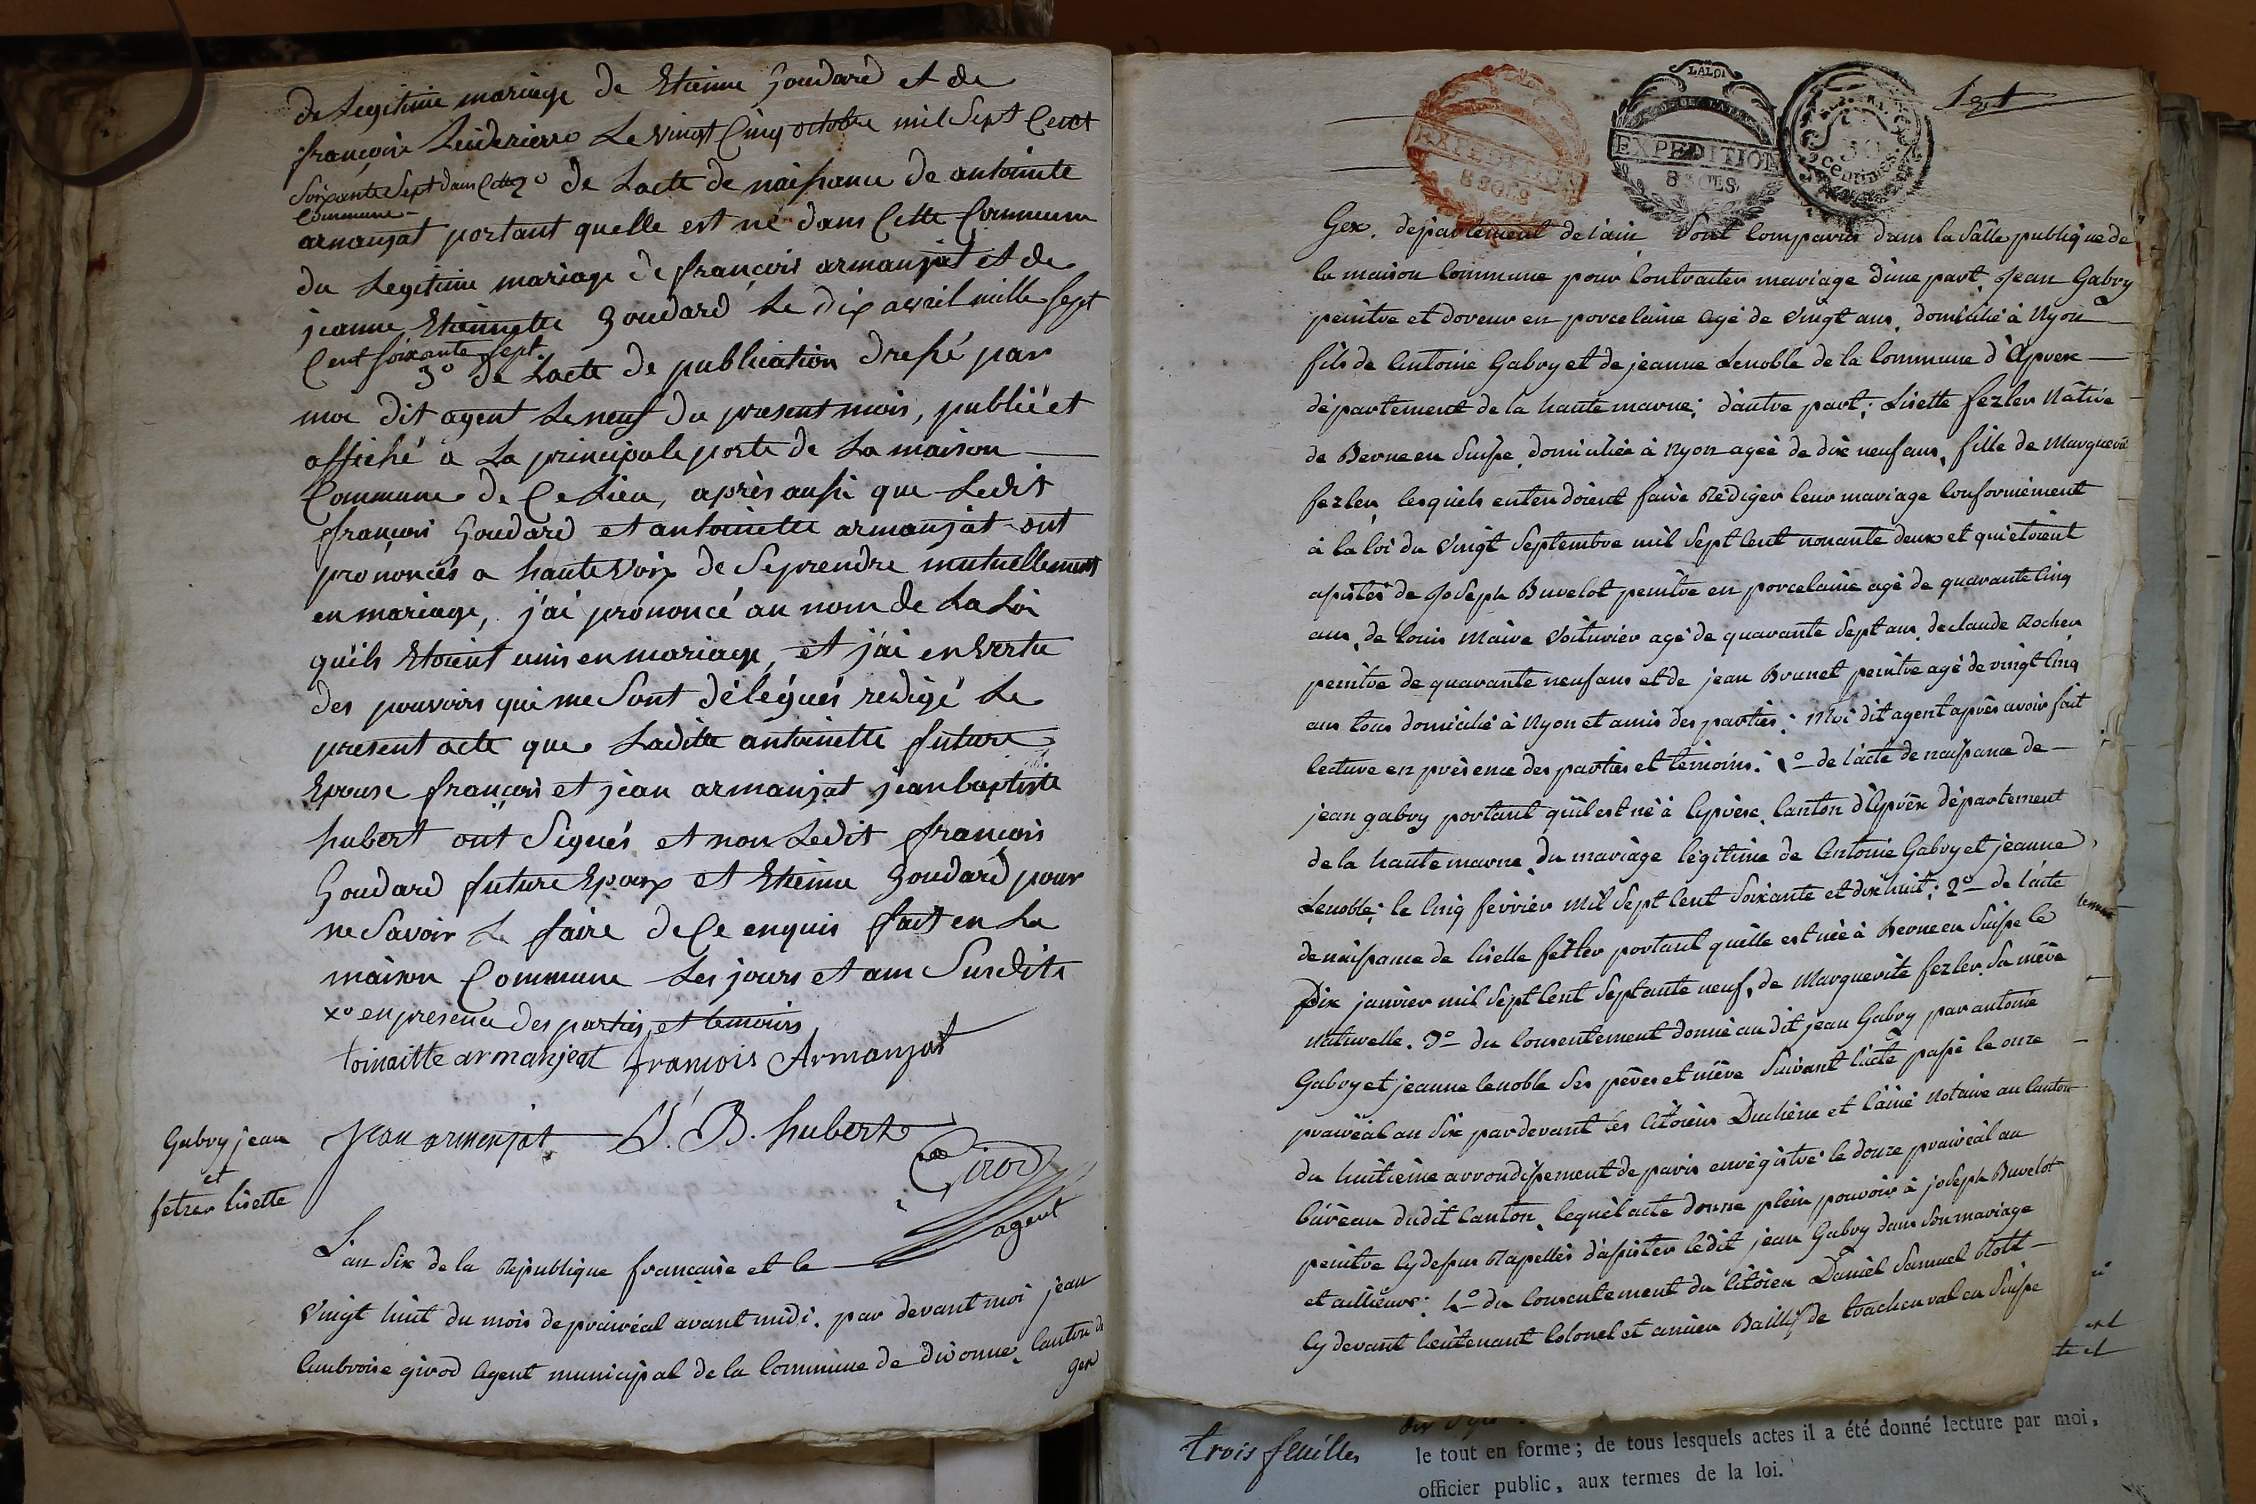 de Legitime mariage de Etienne Goudard et de
françoise Leiderierre Le vingt Cinq octobre mil Sept Cent
Soixante Sept dans Cette 2º de Lacte de naissance de antoinette
Commune
armanjat portant quelle est né dans Cette Commune
du Legitime mariage de françois armanjat et de
jeanne Etiennette Goudard Le dix avril mille sept
Cent soixante sept.
3º de Lacte de publication dressé par
moi dit agent Le neuf du present mois, publié et
affiché a La principale porte de La maison
Commune de Ce Lieu, après aussi que Ledit
françois Goudard et antoinette armanjat ont
prononcés a haute voix de Seprendre mutuellement
en mariage, j'ai prononcé au nom de La Loi
qu'ils Etoient unis en mariage, et j'ai en vertu
des pouvoirs qui me Sont délégués redigé Le
present acte que Ladite antoinette future
Epouse françois et jean armanjat jean baptiste
hubert ont Signés et non Ledit françois
Goudard future Epoux et Etienne Goudard pour
ne Savoir Le faire de Ce enquis fait en La
maison Commune Les jours et am Susdits
xº en presence des parties et temoins
toinaitte armanjeat françois Armanjat
jean armenjat J. B. hubert
Girod
agent
Gabry jean
et
fetzer lisette
L'an Six de la République francaise et le
Vingt huit du mois de prairéal avant midi. par devant moi jean
Ambroise girod Agent municipal de la Commune de divonne, Canton de
gex
LA LOI
EXPEDITION
8 SOLS
EXPEDITION
8 SOLS
50
centimes
Gex. département de lain Sont Comparus dans la Salle publique de
la maison Commune pour Contracter mariage d'une part, Jean Gabry
peintre et doreur en porcelaine agé de vingt ans, domicilié à Nyon
fils de Antoine Gabry et de jeanne Lenoble de la Commune d'Aprex
département de la haute marne; d'autre part; Lisette fezler Nâtive
de Berne en Suisse, domiciliée à Nyon agée de dix neuf ans, fille de Marguerite
fezler, lesquels entendoient faire Rédiger leur mariage Conformément
à la loi du vingt Septembre mil Sept Cent nonante deux et qui étoient
assistés de Joseph Buvelot peintre en porcelaine agé de quarante Cinq
ans, de Louis Maire Voiturier agé de quarante Sept ans, de claude Rochen
peintre de quarante neuf ans et de jean Brunet peintre agé de vingt Cinq
ans tous domicilié à Nyon et amis des parties; Moi dit agent après avoir fait
lecture en présence des parties et témoins: 1º de l'acte de naissance de
jean gabry portant qu'il est né à Aprèx, Canton d'Aprêx département
de la haute marne, du mariage légitime de Antoine Gabry et jeanne
Lenoble; le Cinq février Mil Sept Cent Soixante et dix huit; 2º de l'acte
de naissance de lisette fetzler portant qu'elle est née à Berne en Suisse le
Dix janvier mil Sept Cent Septante neuf, de Marguerite fezler Sa mère
Naturelle. 3º du Consentement donné au dit jean Gabry par antoine
Gabry et jeanne lenoble Ses pères et mère Suivant l'acte passé le onze
prairéal an Six pardevant les Citoïens Duchêne et l'ainé Notaire au Canton
du huitième arrondissement de paris enrégistré le douze prairéal au
bureau dudit Canton, lequel acte donne plein pouvoir à joseph Buvelot
peintre Cy dessus Rapellés d'assister ledit jean Gabry dans Son mariage
et ailleurs: 4º du Consentement du Citoïen Daniel Samuel Rott
Cy devant lieutenant Colonel et ancien Bailly de trachenval en Suisse
trois feuilles
le tout en forme ; de tous lesquels actes il a été donné lecture par moi,
officier public, aux termes de la loi.